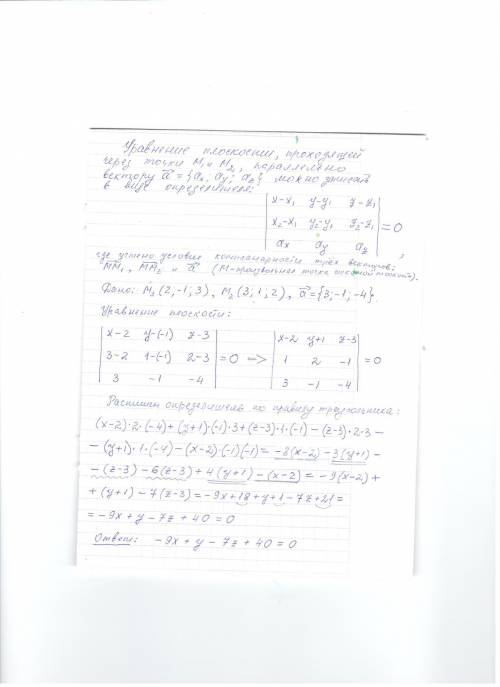 Уравнение плоскости, проходящей
через точки M₁ и M₂, параллельно
вектору a⃗ = {aₓ; a_y; a_z} можно записать
в виде определителя:
| x-x₁ y-y₁ z-z₁ |
| x₂-x₁ y₂-y₁ z₂-z₁ | = 0
| aₓ a_y a_z | ,
где учтено условие компланарности трёх векторов;
MM₁, MM₂ и a⃗ (M-произвольная точка искомой плоскости).
Дано: M₁(2,-1,3), M₂(3;1;2), a⃗={3;-1;-4}.
Уравнение плоскости:
| x-2 y-(-1) z-3 | | x-2 y+1 z-3 |
| 3-2 1-(-1) 2-3 | = 0 => | 1 2 -1 | = 0
| 3 -1 -4 | | 3 -1 -4 |
Распишем определитель по правилу треугольника:
(x-2)·2·(-4)+(y+1)·(-1)·3+(z-3)·1·(-1)-(z-3)·2·3-
-(y+1)·1·(-4)-(x-2)·(-1)(-1)=-8(x-2)-3(y+1)-
-(z-3)-6(z-3)+4(y+1)-(x-2)=-9(x-2)+
+(y+1)-7(z-3)=-9x+18+y+1-7z+21=
=-9x+y-7z+40=0
Ответ: -9x+y-7z+40=0